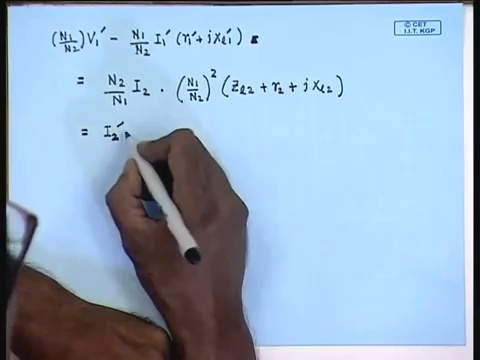 © CET
I.I.T. KGP
(N₁/N₂) V₁′ − N₁/N₂ I₁′ (r₁′ + jxℓ₁′) =
= N₂/N₁ I₂ · (N₁/N₂)² (Zℓ₂ + r₂ + jxℓ₂)
= I₂′